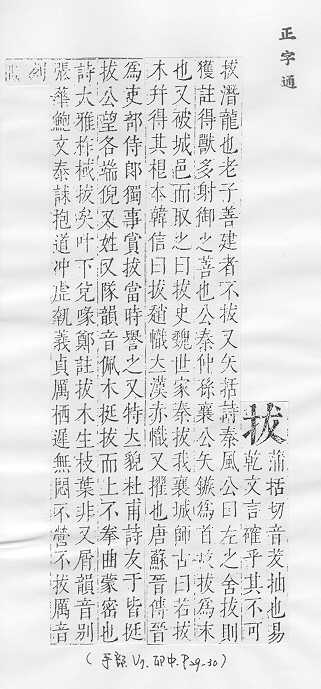 正字通
拔
蒲括切音茇抽也易
乾文言確乎其不可
拔潛龍也老子善建者不拔又矢括詩秦風公曰左之舍拔則
獲註得獸多射御之善也公秦仲孫襄公矢鏃為首故拔為末
也又破城邑而取之曰拔史魏世家秦拔我襄城師古曰若拔
木幷得其根本韓信曰拔趙幟立漢赤幟又擢也唐蘇晉傳晉
為吏部侍郎獨事賞拔當時譽之又特立貌杜甫詩友于皆挺
拔公望各端倪又姓又隊韻音佩木挺拔而上不拳曲蒙密也
詩大雅柞棫拔矣叶下兌喙鄭註拔木生枝葉非又屑韻音别
張華鮑文泰誄抱道沖虛執義貞厲栖遲無悶不營不拔厲音
列
(手部. V7. 卯中. P.29-30)